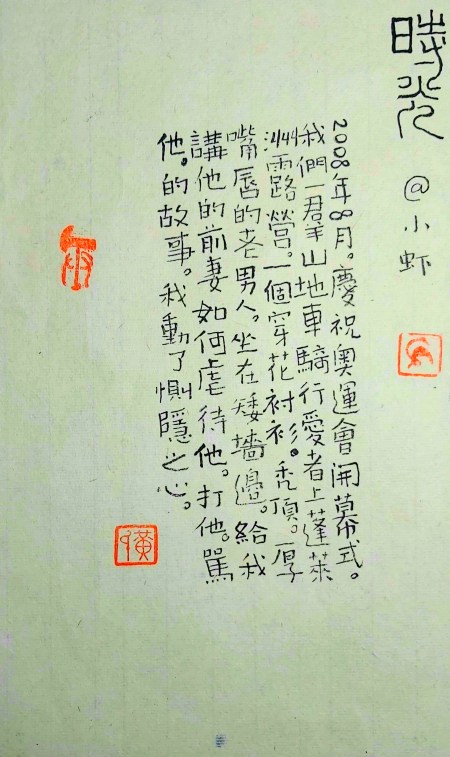 時光
@小虾
2008年8月。慶祝奧運會開幕式。
我們一群山地車騎行愛者上蓬萊
洲露營。一個穿花衬衫。秃頂。厚
嘴唇的老男人。坐在矮墻邊。給我
講他的前妻如何虐待他。打他。罵
他。的故事。我動了惻隱之心。